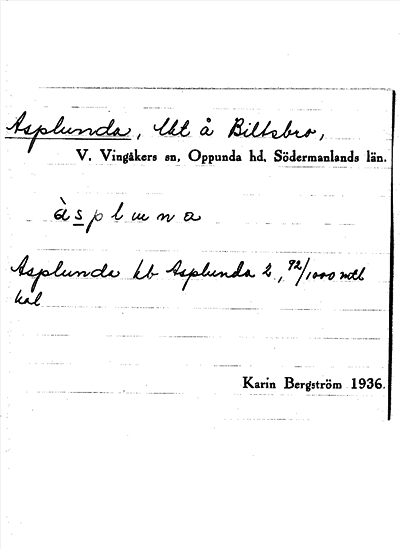 Asplunda, lht å Biltsbro,
V. Vingåkers sn, Oppunda hd, Södermanlands län.
àsplunna
Asplunda kb Asplunda 2, 92/1000 mtl
kal
Karin Bergström 1936.